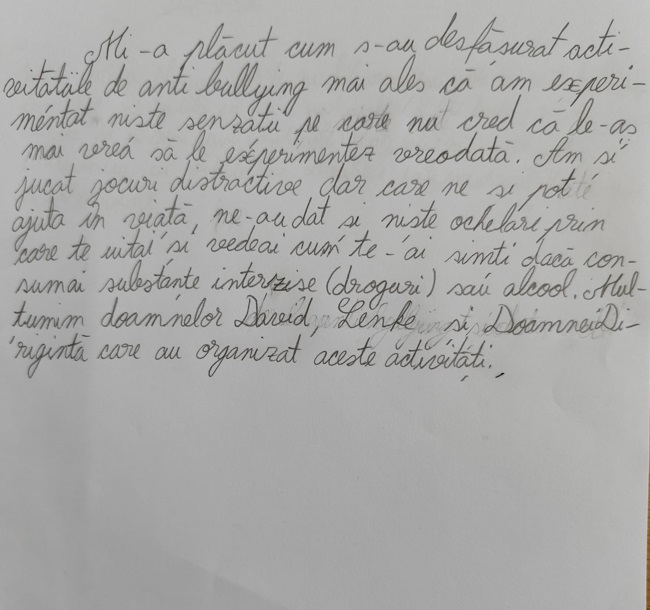 Mi-a plăcut cum s-au desfăsurat acti-
vitătiile de anti bullying mai ales că am experi-
mentat niste senzatii pe care nu cred că le-as
mai vrea să le experimentez vreodată. Am si
jucat jocuri distractive dar care ne si pot
ajuta în viată, ne-au dat si niste ochelari prin
care te uitai si vedeai cum te-ai simti dacă con-
sumai substante interzise (droguri) sau alcool. Mul-
tumim doamnelor David, Lenke si Doamnei Di-
rigintă care au organizat aceste activităti.